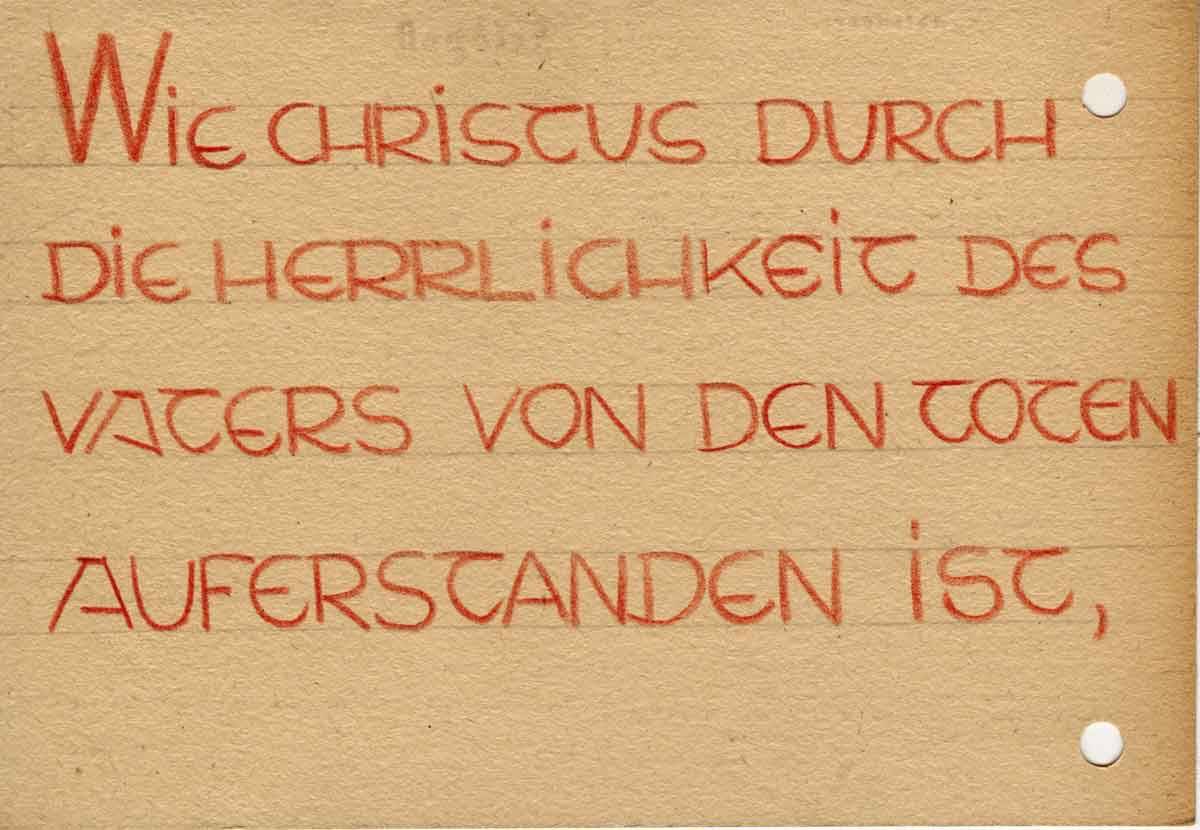 Wie CHRiSTUS DURCH
DiE HERRLiCHKEiT DES
VATERS VON DEN TOTEN
AUFERSTANDEN iST,